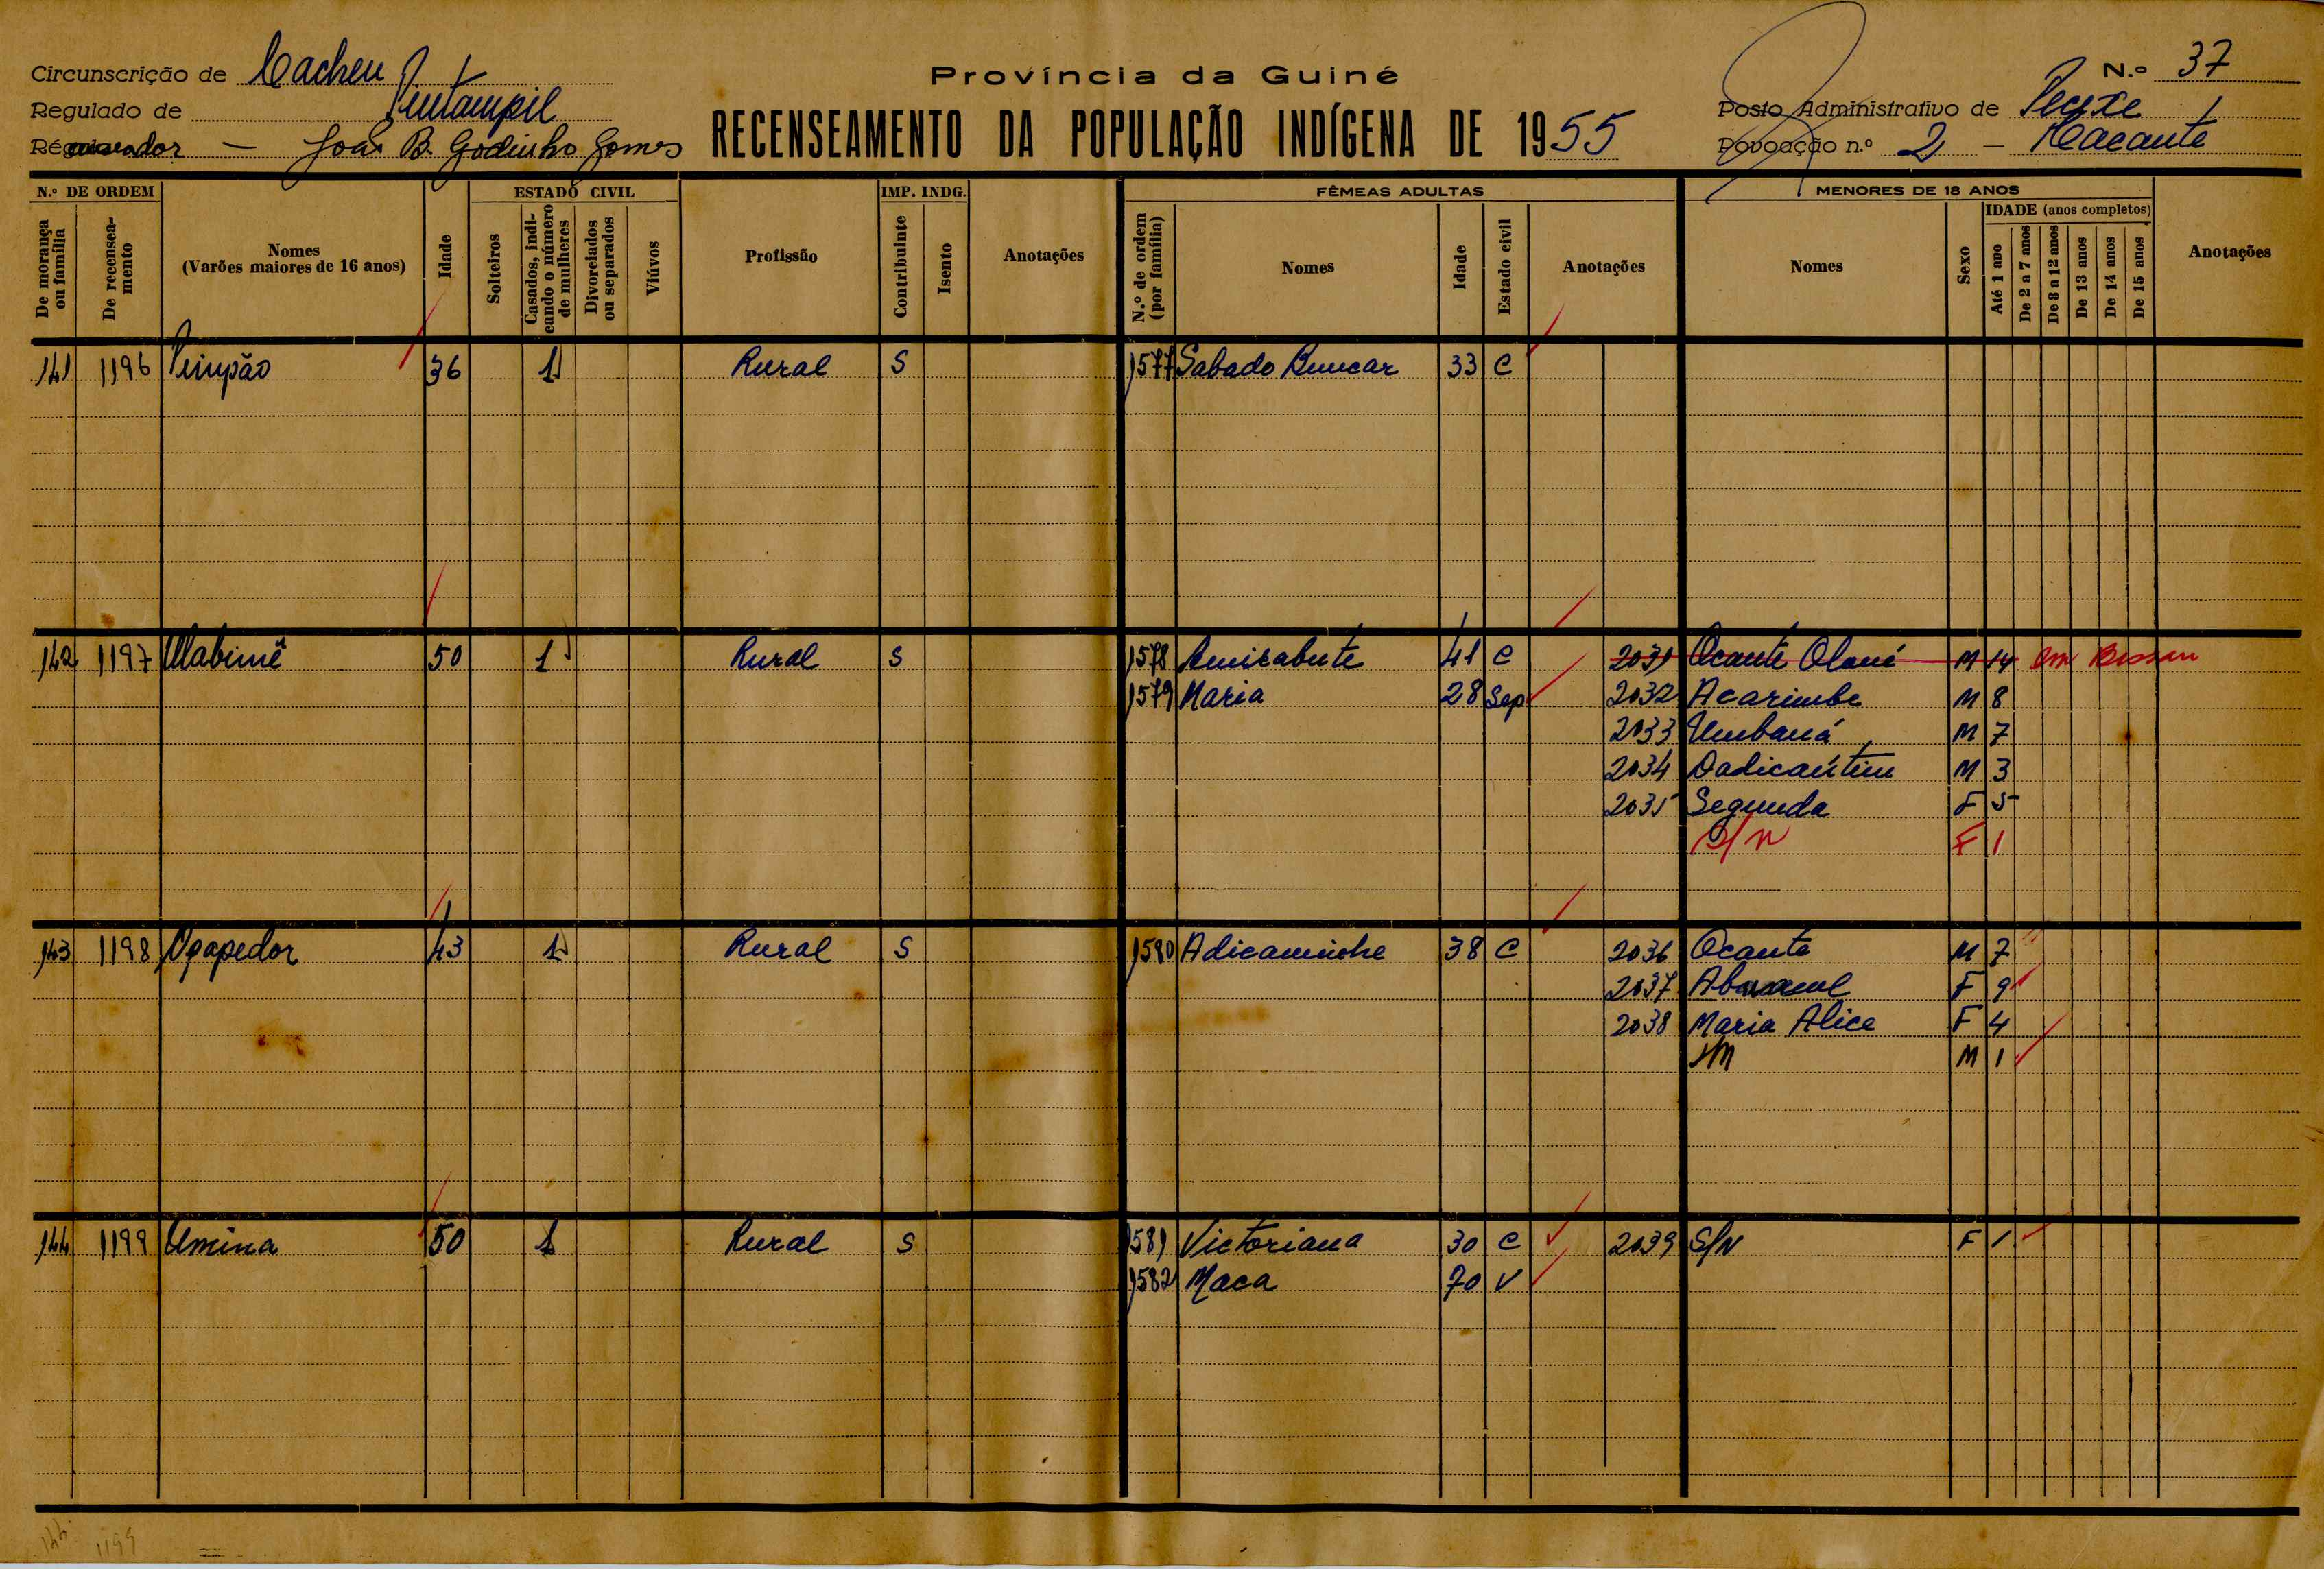 Circunscrição de Cacheu
Província da Guiné
N.º 37
Regulado de Pintampil
Posto Administrativo de Pecixe
João B. Godinho Gomes
RECENSEAMENTO DA POPULAÇÃO INDÍGENA DE 1955
Povoação n.º 2 - Cacante
N.º DE ORDEM
ESTADO CIVIL
IMP. INDG.
FÊMEAS ADULTAS
MENORES DE 18 ANOS
De morança ou família
De recenseamento
Nomes (Varões maiores de 16 anos)
Idade
Solteiros
Casados, indicando o número de mulheres
Divorciados ou separados
Viúvos
Profissão
Contribuinte
Isento
Anotações
N.º de ordem (por família)
Nomes
Idade
Estado civil
Anotações
Nomes
Sexo
IDADE (anos completos)
Até 1 ano
De 2 a 7 anos
De 8 a 12 anos
De 13 anos
De 14 anos
De 15 anos
Anotações
141 1196 Pinpão 36 1 Rural S 1577 Sabado Buncar 33 C
142 1197 Ulabimê 50 1 Rural S 1578 Amisabute 41 C 2031 Ocante Oloné M 14 Em Bissau
1579 Maria 28 Sep 2032 Acarimbe M 8
2033 Umbaná M 7
2034 Dadicantim M 3
2035 Segunda F 5
S/N F 1
143 1198 Ogapedor 43 1 Rural S 1580 Adicaminhe 38 C 2036 Ocante M 7
2037 F 9
2038 Maria Alice F 4
M 1
144 1199 Umina 50 1 Rural S 1581 Victoriana 30 C 2039 S/N F 1
1582 Maca 70 V
144 1199